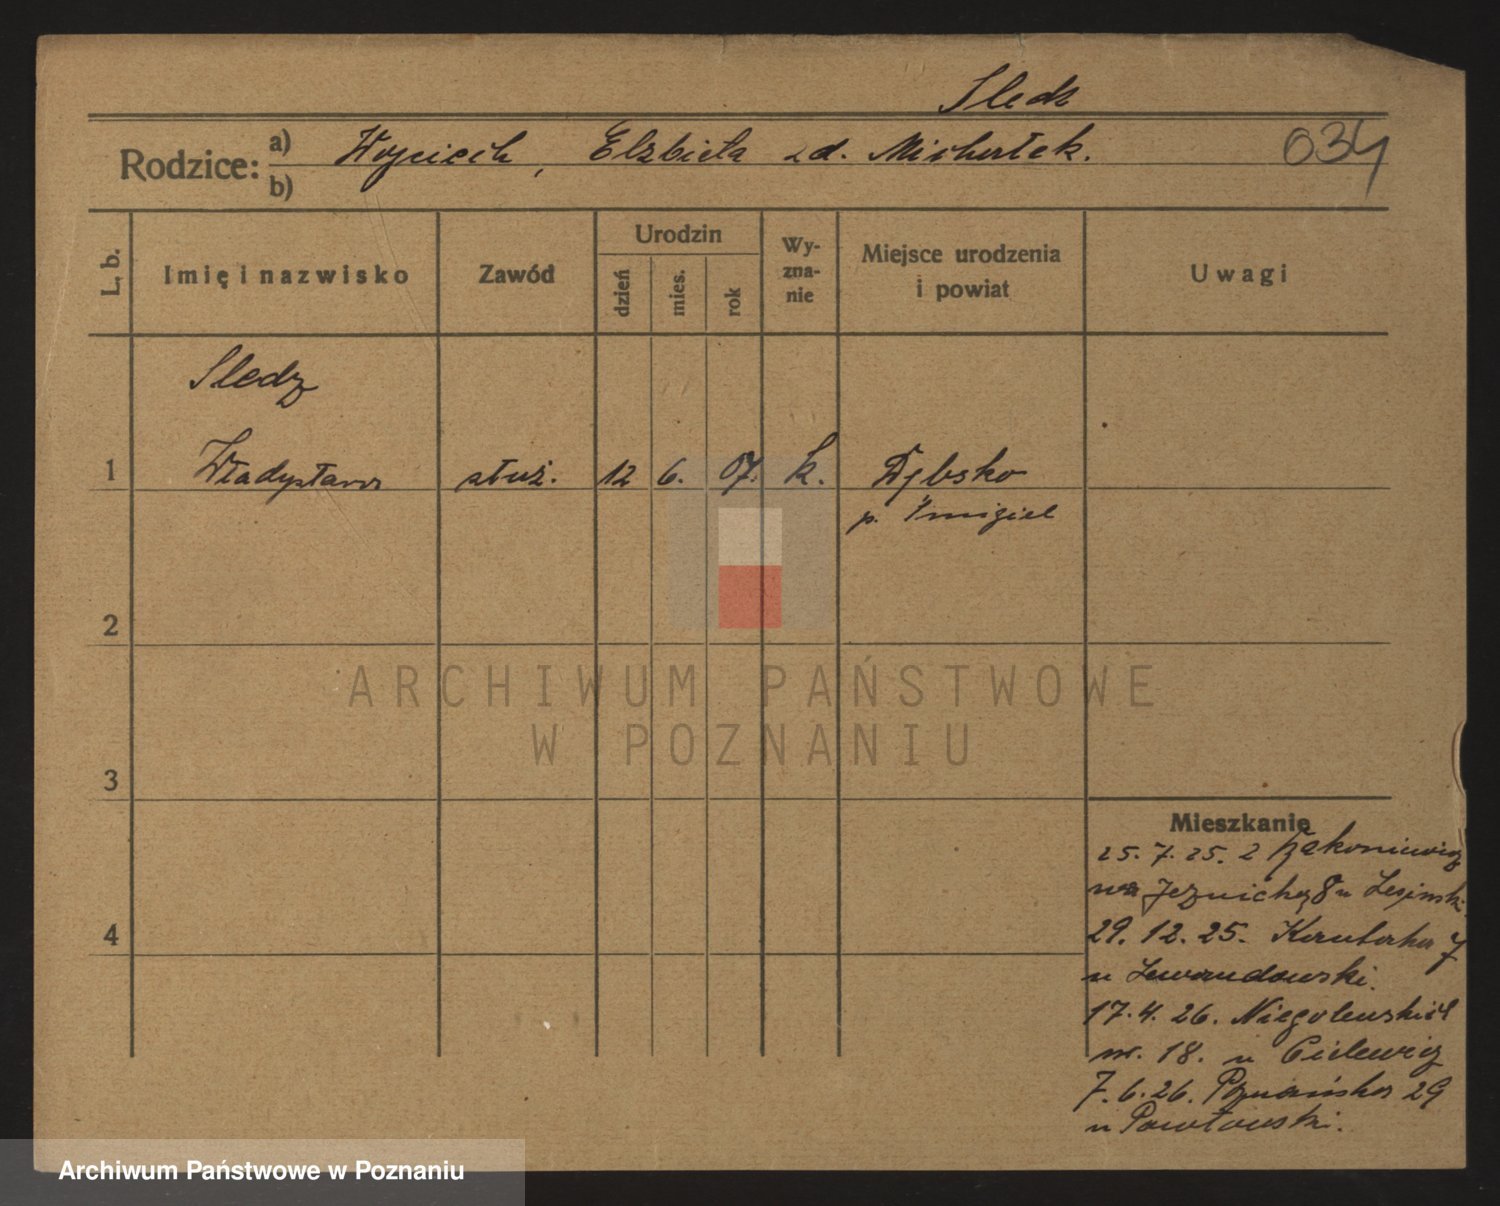 Sledz
Rodzice: a) Wojciech, Elzbieta zd. Michałek.
b)
034
L. b.
Imię i nazwisko
Zawód
Urodzin
dzień
mies.
rok
Wy-
zna-
nie
Miejsce urodzenia
i powiat
Uwagi
Sledz
1 Władysława służ. 12 6. 07. k. Dębsko
p. Śmigiel
2
3
4
Mieszkanie
25. 7. 25. z
na Jeżnickej 8 u
29. 12. 25. 7
u Lewandowski.
17. 4. 26. Niegolewskich
nr. 18. u
7. 6. 26. Poznańska 29
u Pawłowski.
ARCHIWUM PAŃSTWOWE
W POZNANIU
Archiwum Państwowe w Poznaniu